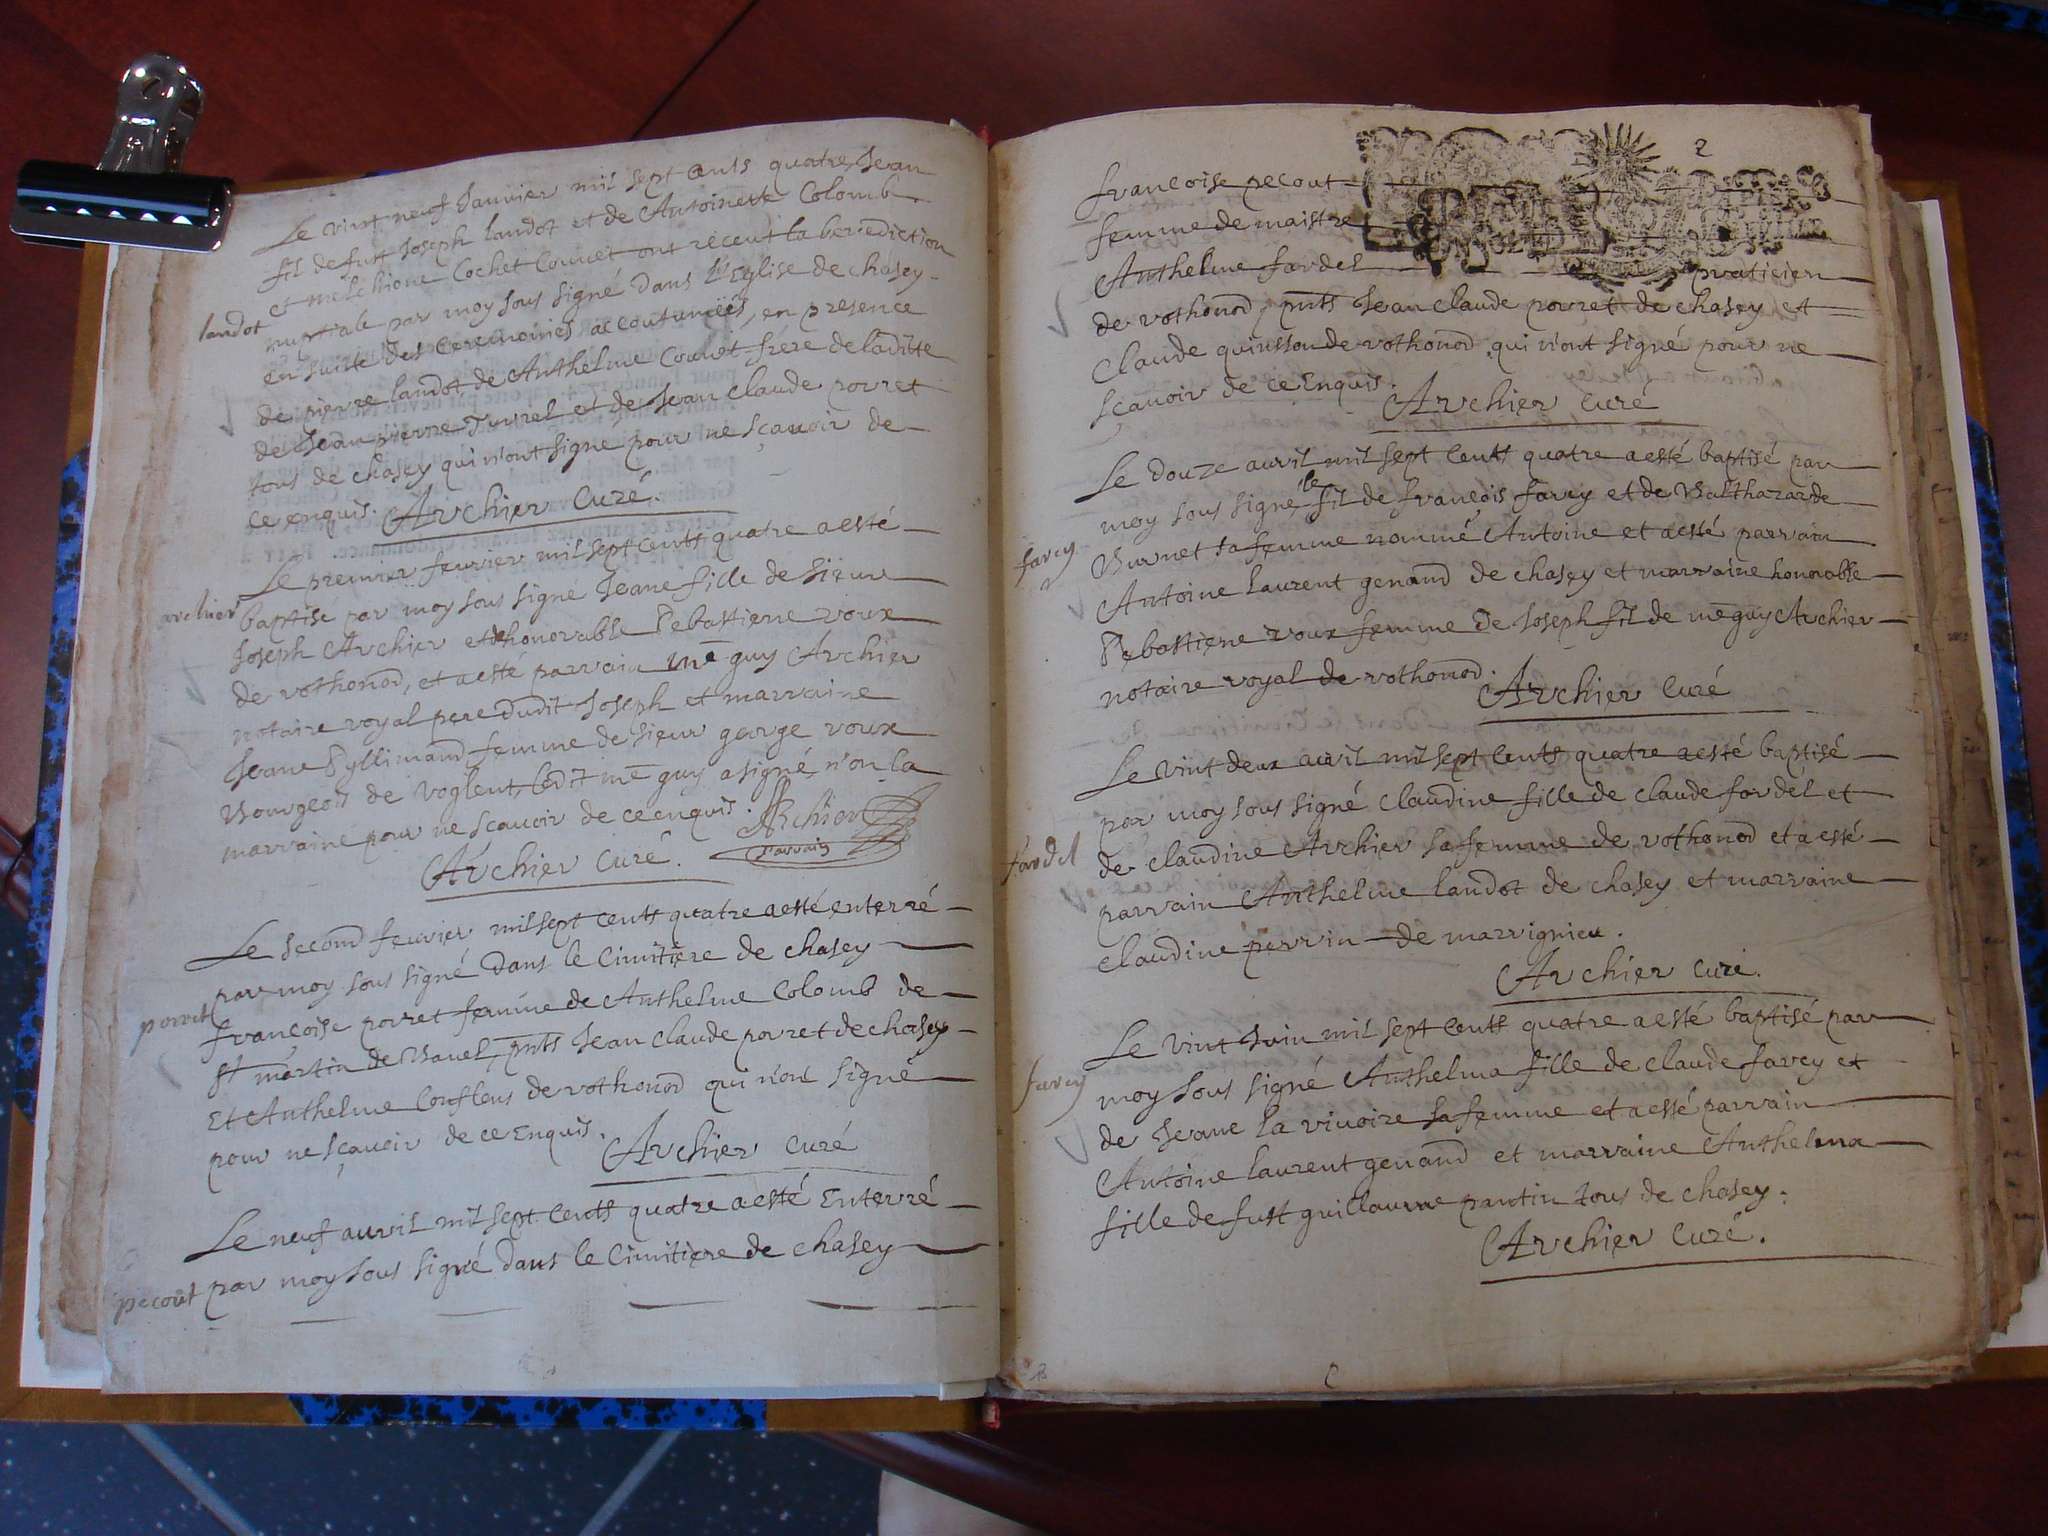 Le vint neuf Janvier mil sept cents quatre, Jean
fil de fust Joseph landot et de Antoinette Colomb
et melchione Cochet Couvet ont receut la benediction
nuptiale par moy sous signé dans l'Eglise de chasey
landot
en suitte des ceremonies accoutumées, en presence
de pierre landot de Anthelme Couvet frère de laditte
de Jean pierre Turrel et de Jean Claude porret
tous de chasey qui n'ont signé pour ne sçavoir de
ce enquis. Archier Curé.
Le premier feuvrier mil sept cents quatre a esté
archier
baptisé par moy sous signé Jeane fille de sieur
Joseph Archier et de honorable Sebastiene roux
de vothonod, et a esté parrain me guy Archier
notaire royal pere dudit Joseph et marraine
Jeane Syllimand femme de sieur george roux
Bourgeois de voglent, ledit me guy a signé, n'on la
marraine pour ne scavoir de ce enquis. Archier
parrain
Archier Curé.
Le second feuvrier mil sept cents quatre a esté enterré
par moy sous signé dans le Cimitière de chasey
porret
françoise porret femme de Anthelme Colomb de
st martin de Bavel, pnts Jean Claude porret de chasey
Et Anthelme Conflens de vothonod qui n'ont signé
pour ne sçavoir de ce Enquis.
Archier curé
Le neuf avvril mil sept cents quatre a esté Enterré
pecout
par moy sous signé dans le Cimitière de chasey
2
francoise pecout
femme de maistre
Anthelme fardel praticien
de vothonod, pnts Jean Claude porret de chasey et
Claude quinsson de vothonod qui n'ont signé pour ne
sçavoir de ce Enquis.
Archier curé
Le douze avvril mil sept cents quatre a esté baptisé par
moy sous signé le fil de francois farcy et de Balthazarde
farcy
Burnet sa femme nommé Antoine et a esté parrain
Antoine laurent genand de chasey et marraine honorable
Sebastiene roux femme de Joseph fil de me guy Archier
notaire royal de vothonod.
Archier Curé
Le vint deux avvril mil sept cents quatre a esté baptisé
par moy sous signé Claudine fille de Claude fardel et
fardel
de claudine Archier sa femme de vothonod et a esté
parrain Anthelme landot de chasey et marraine
claudine perrin de marrignieu.
Archier curé.
Le vint Juin mil sept cents quatre a esté baptisé par
farcy
moy sous signé Anthelma fille de Claude farcy et
de Jeane la vivoire sa femme et a esté parrain
Antoine laurent genand et marraine Anthelma
fille de fust guillaume pantin tous de chasey.
Archier Curé.